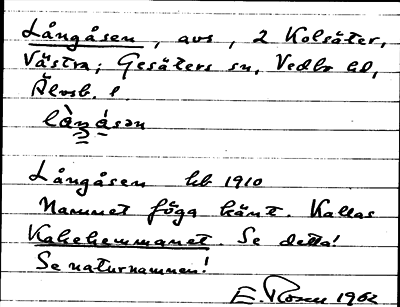 Långåsen, avs, 2 Kolsäter,
Västra; Gesäters sn, Vedbo hd,
Älvsb. l.
làŋåsən
Långåsen hb 1910
Namnet föga känt. Kallas
Kakehemmanet. Se detta!
Se naturnamnen!
E. Rosen 1962